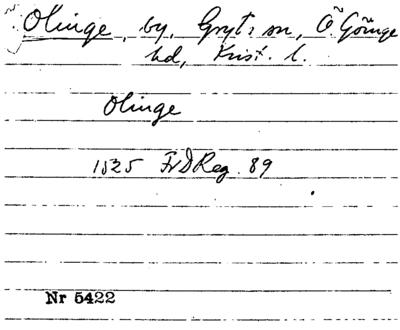 Olinge, by, Gryts sn, Ö. Göinge
hd, Krist. l.
Olinge
1525 FrDReg. 89
Nr 5422